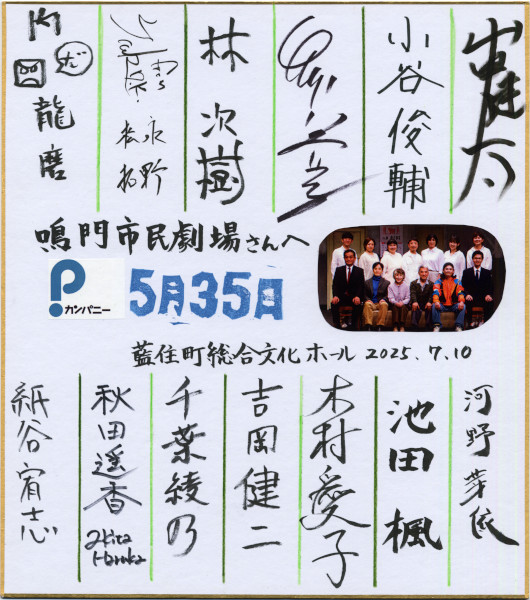 小谷俊輔
林次樹
松永
拓野
内
だ
龍磨
鳴門市民劇場さんへ
P カンパニー
5月35日
藍住町総合文化ホール 2025.7.10
河野芽依
池田楓
木村愛子
吉岡健二
千葉綾乃
秋田遥香
Akita
Haruka
紙谷宥志